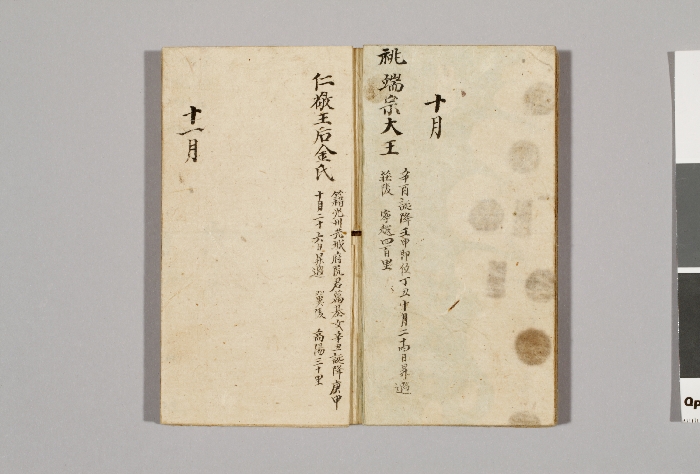 十月
祧 端宗大王
辛酉誕降壬申即位丁丑十月二十四日昇遐
莊陵 寧越四百里
仁敬王后金氏
籍光州光城府院君萬基女辛丑誕降庚申
十月二十六日昇遐 翼陵 高陽三十里
十一月
Qp